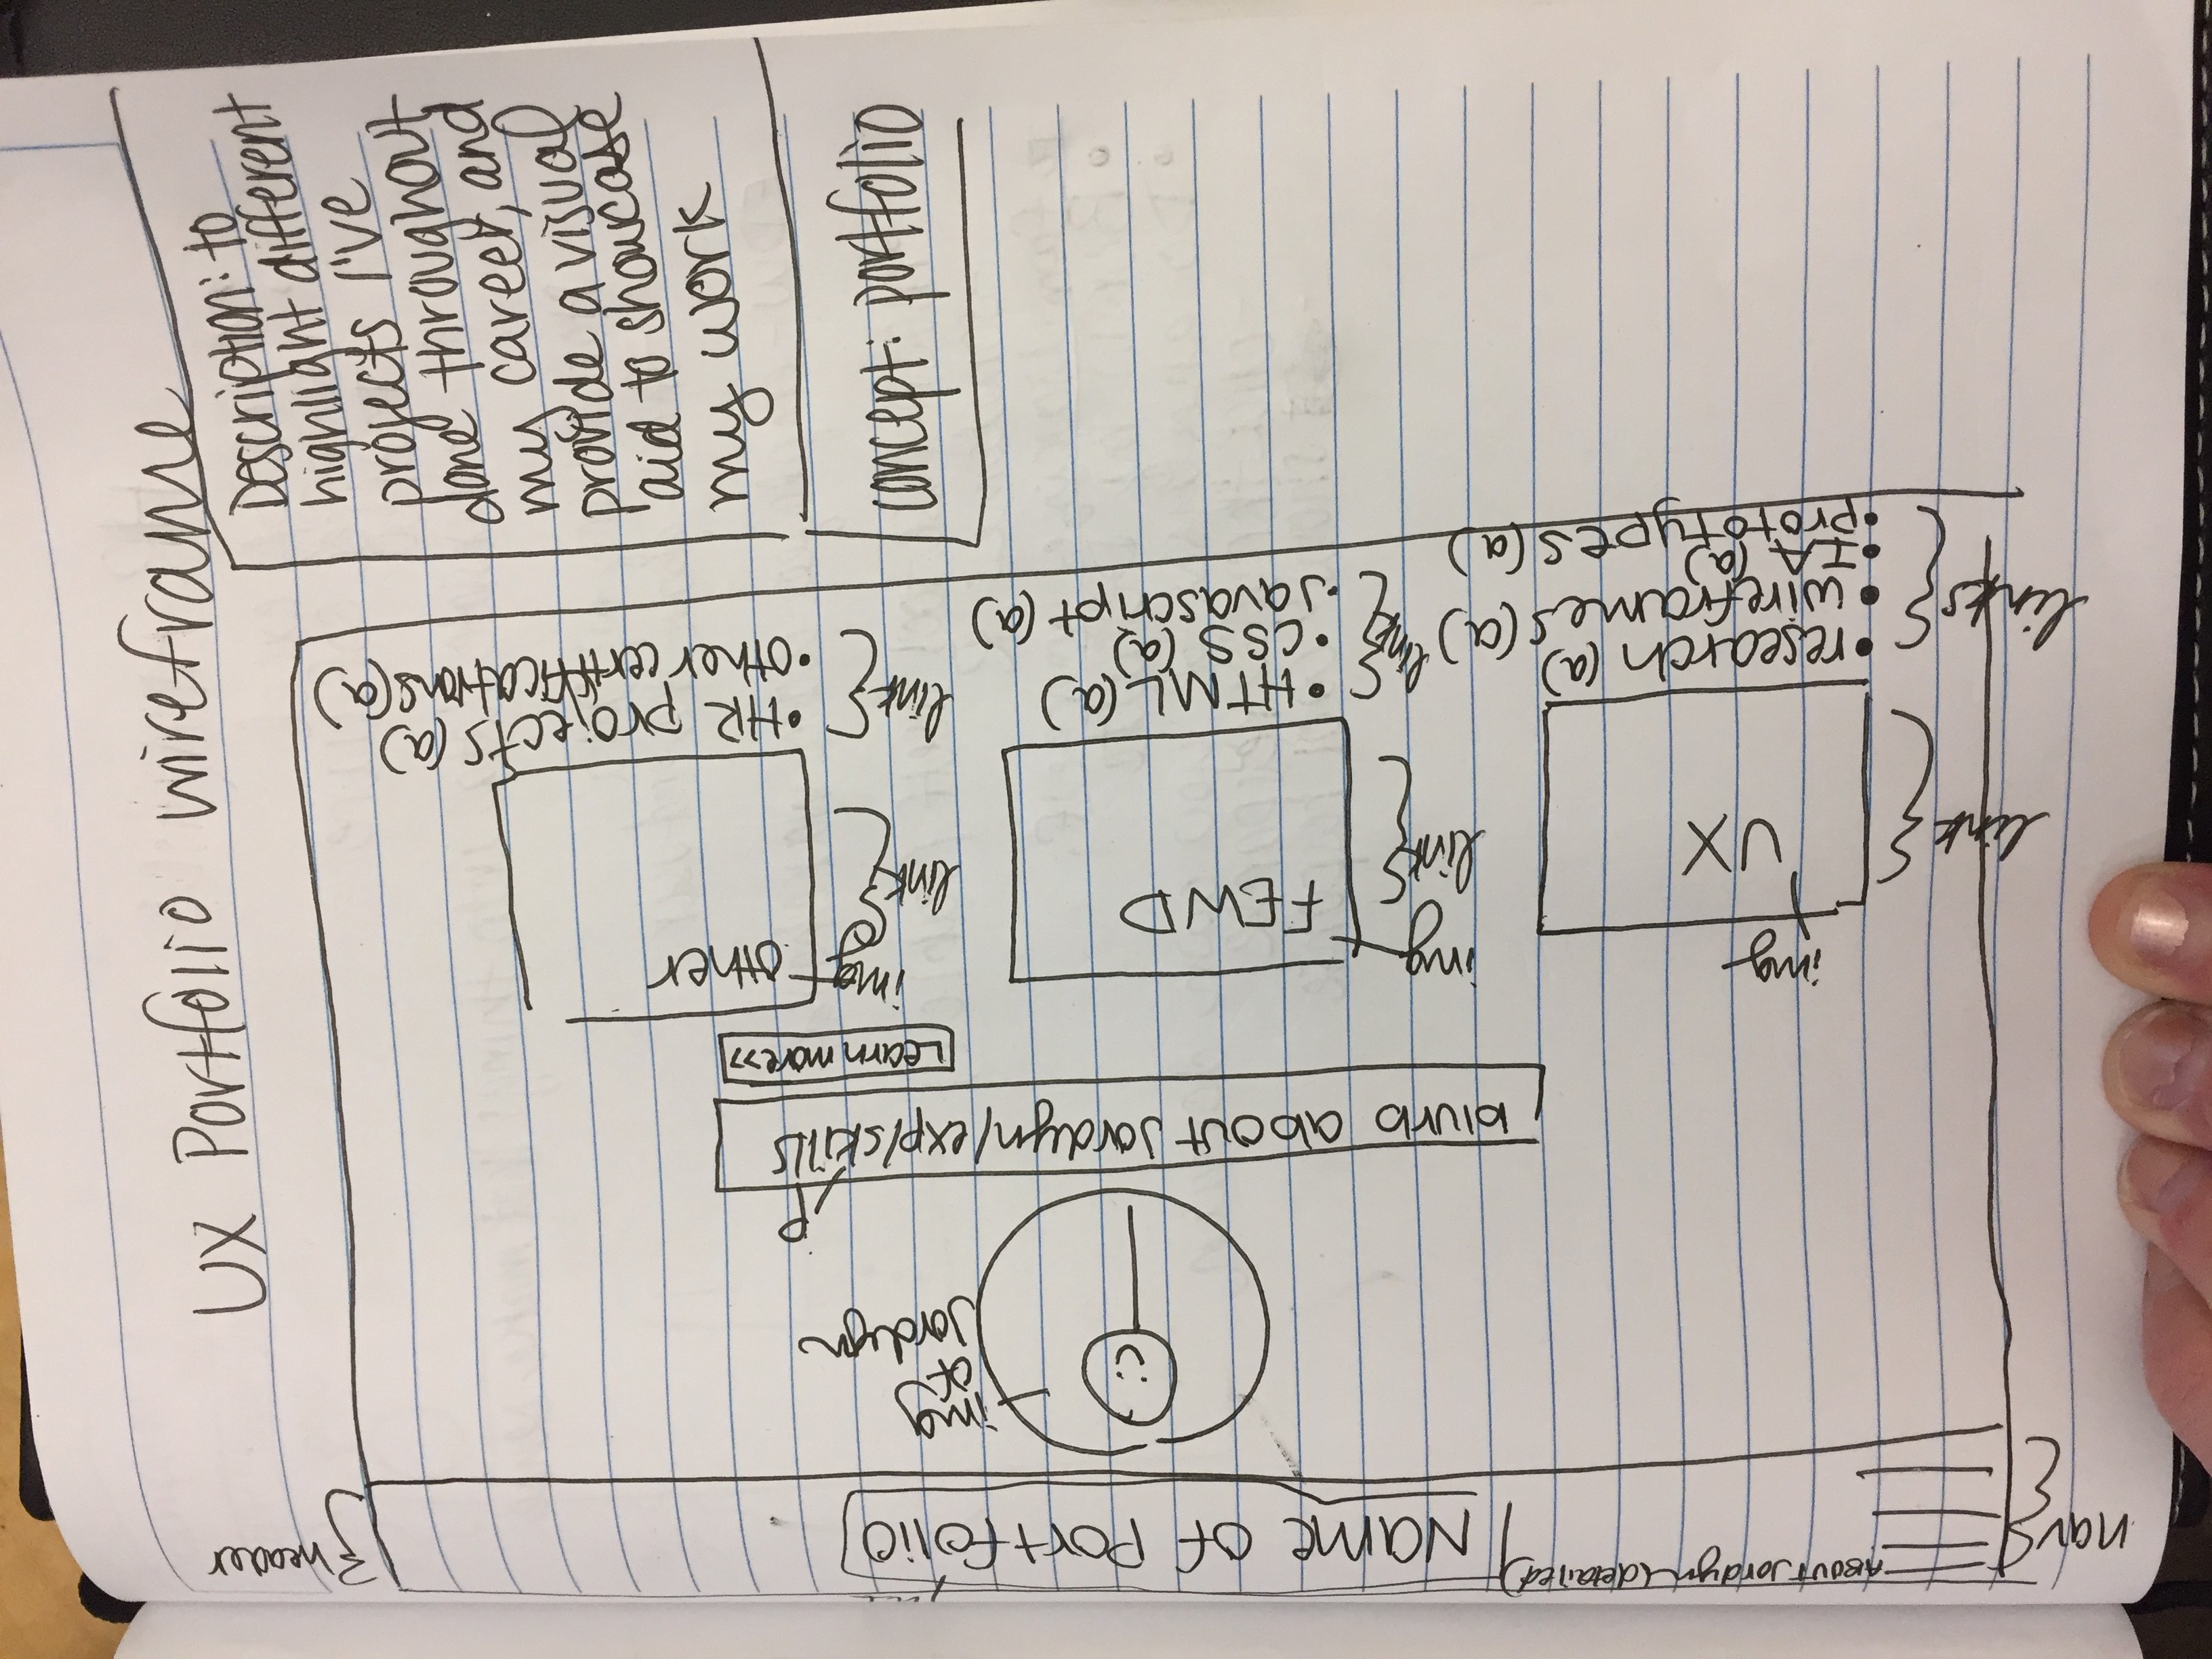 nav
ABOUT Jordyn (detailed)
Name of Portfolio
header
img
of
Jordyn
P
blurb about Jordyn/exp/skills
Learn more>>
img
UX
link
links
•research (a)
•wireframes (a)
•IA (a)
•prototypes (a)
img
FEWD
link
link
•HTML (a)
•CSS (a)
•Javascript (a)
img
other
link
link
•HR projects (a)
•other certifications (a)
UX Portfolio wireframe
Description: to
highlight different
projects I've
done throughout
my career, and
provide a visual
aid to showcase
my work
concept: portfolio